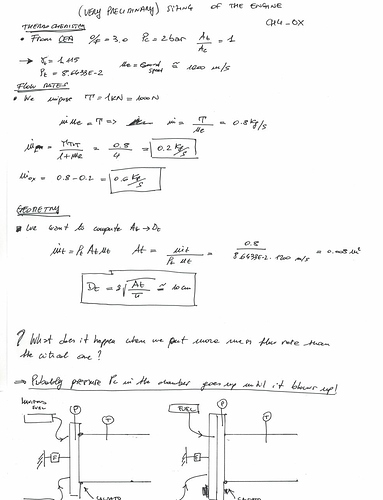 (VERY PRELIMINARY) SIZING OF THE ENGINE
CH4-OX
THERMOCHEMISTRY
• From CEA O/F = 3.0 Pc = 2bar At/Ac = 1
→ γ = 1.115
ρt = 8.6433E-2 ue = sound speed ≅ 1200 m/s
FLOW RATES
• We impose T = 1kN = 1000N
ṁ ue = T => ṁ = T/ue = 0.8 kg/s
= 0.8/4 = 0.2 kg/s
ṁox = 0.8-0.2 = 0.6 kg/s
GEOMETRY
• We want to compute At → Dt
ṁt = ρt At ut At = ṁt/ρt ut = 0.8/8.6433E-2 · 1200 m/s = 0.008 m²
Dt = 2√At/π ≅ 10 cm
? What does it happen when we put more mass flow rate than
the critical one?
⇒ Probably pressure Pc in the chamber goes up until it blows up!
FUEL
P
T
F
FUEL
P
T
F